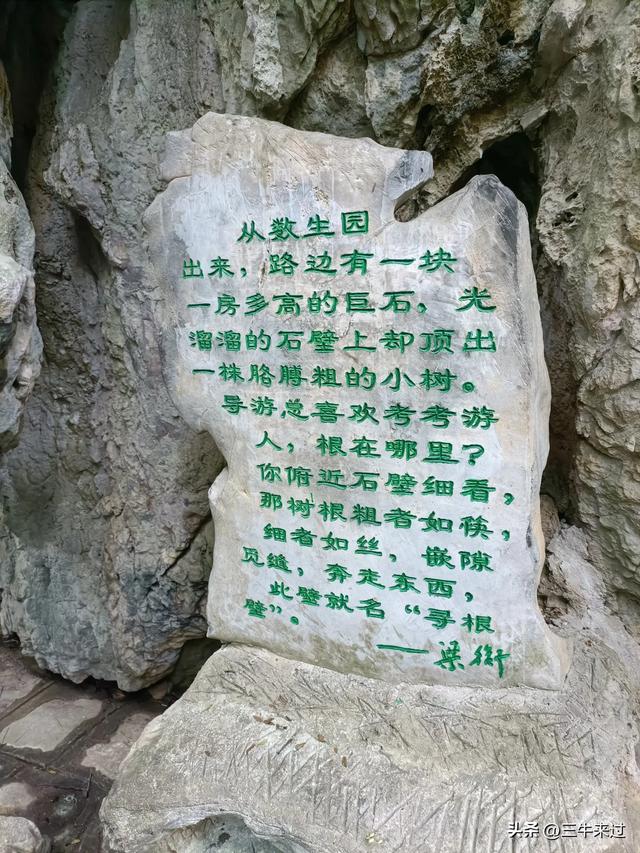 从数生园
出来，路边有一块
一房多高的巨石，光
溜溜的石壁上却顶出
一株胳膊粗的小树。
导游总喜欢考考游
人，根在哪里？
你俯近石壁细看，
那树根粗者如筷，
细者如丝，嵌隙
觅缝，奔走东西，
此壁就名“寻根
壁”。
——梁衡
头条 @三牛来过